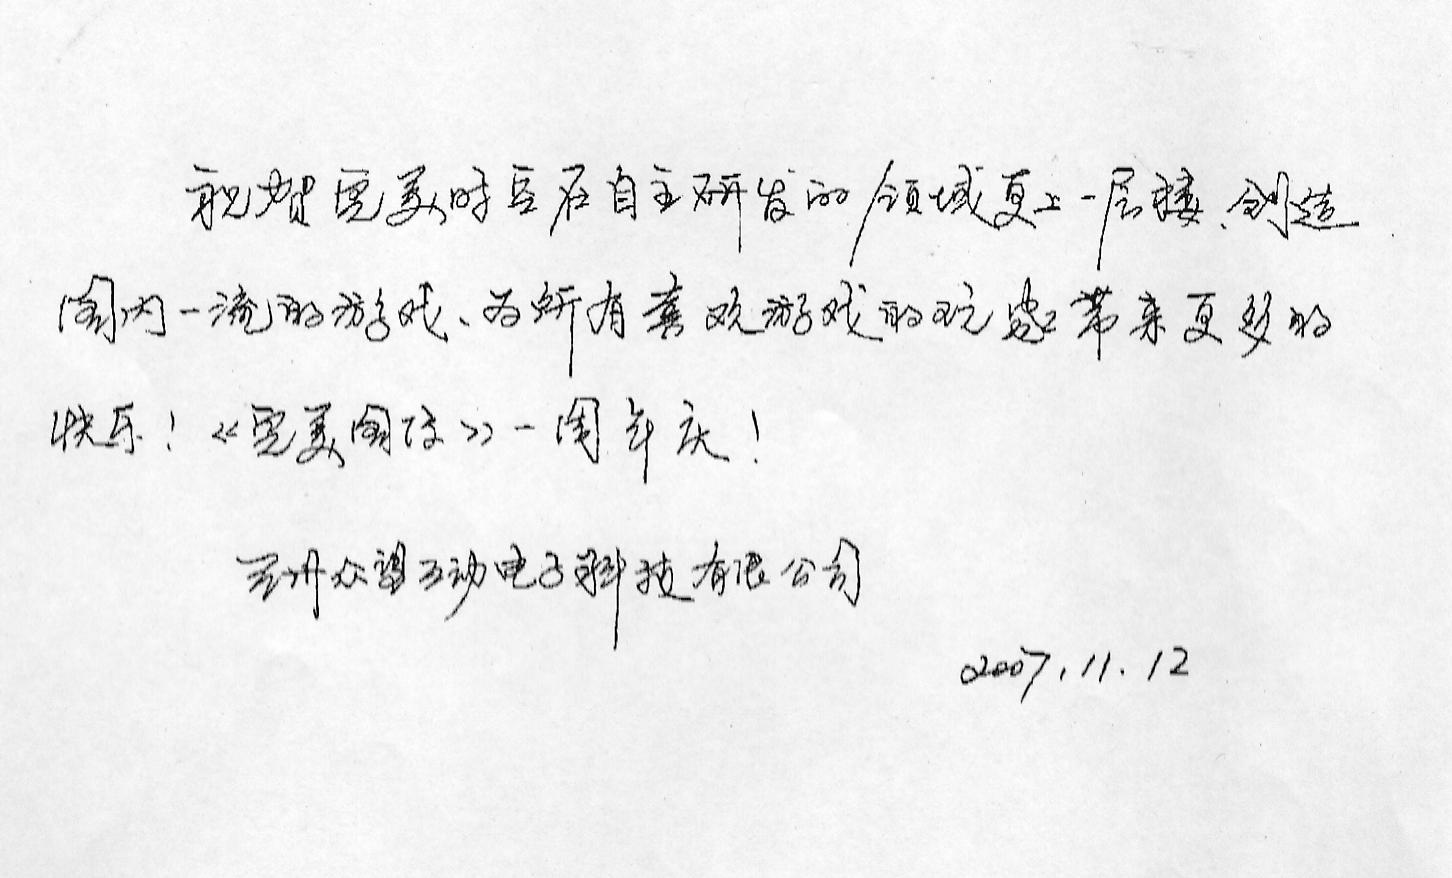 祝贺完美时空在自主研发的领域更上一层楼、创造
国内一流的游戏、为所有喜欢游戏的玩家带来更多的
快乐！《完美国际》一周年庆！
众望互动电子科技有限公司
2007.11.12